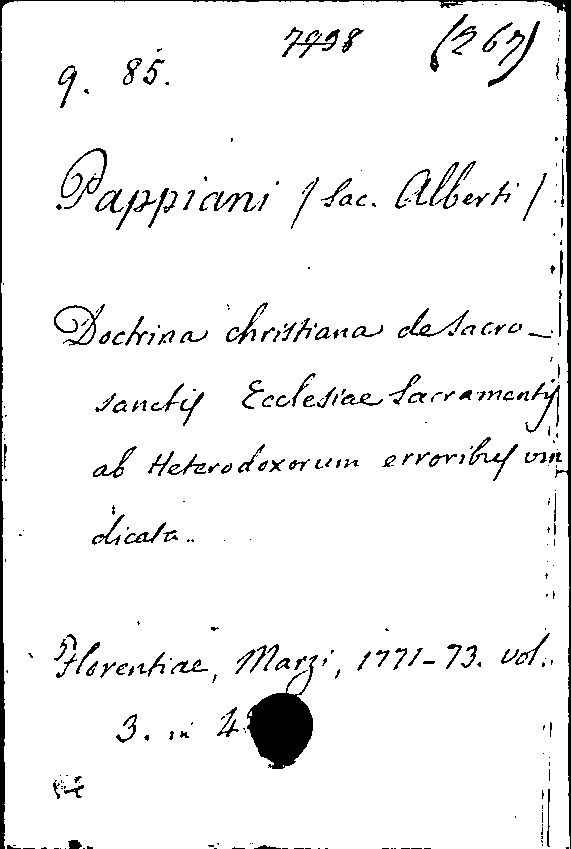 7998 (267)
9. 85.
Pappiani / Sac. Alberti /
Doctrina christiana de Sacro-
sanctis Ecclesiae Sacramentis
ab Heterodoxorum erroribus vin
dicata.
Florentiae, Marzi, 1771-73. vol.
3. in 4